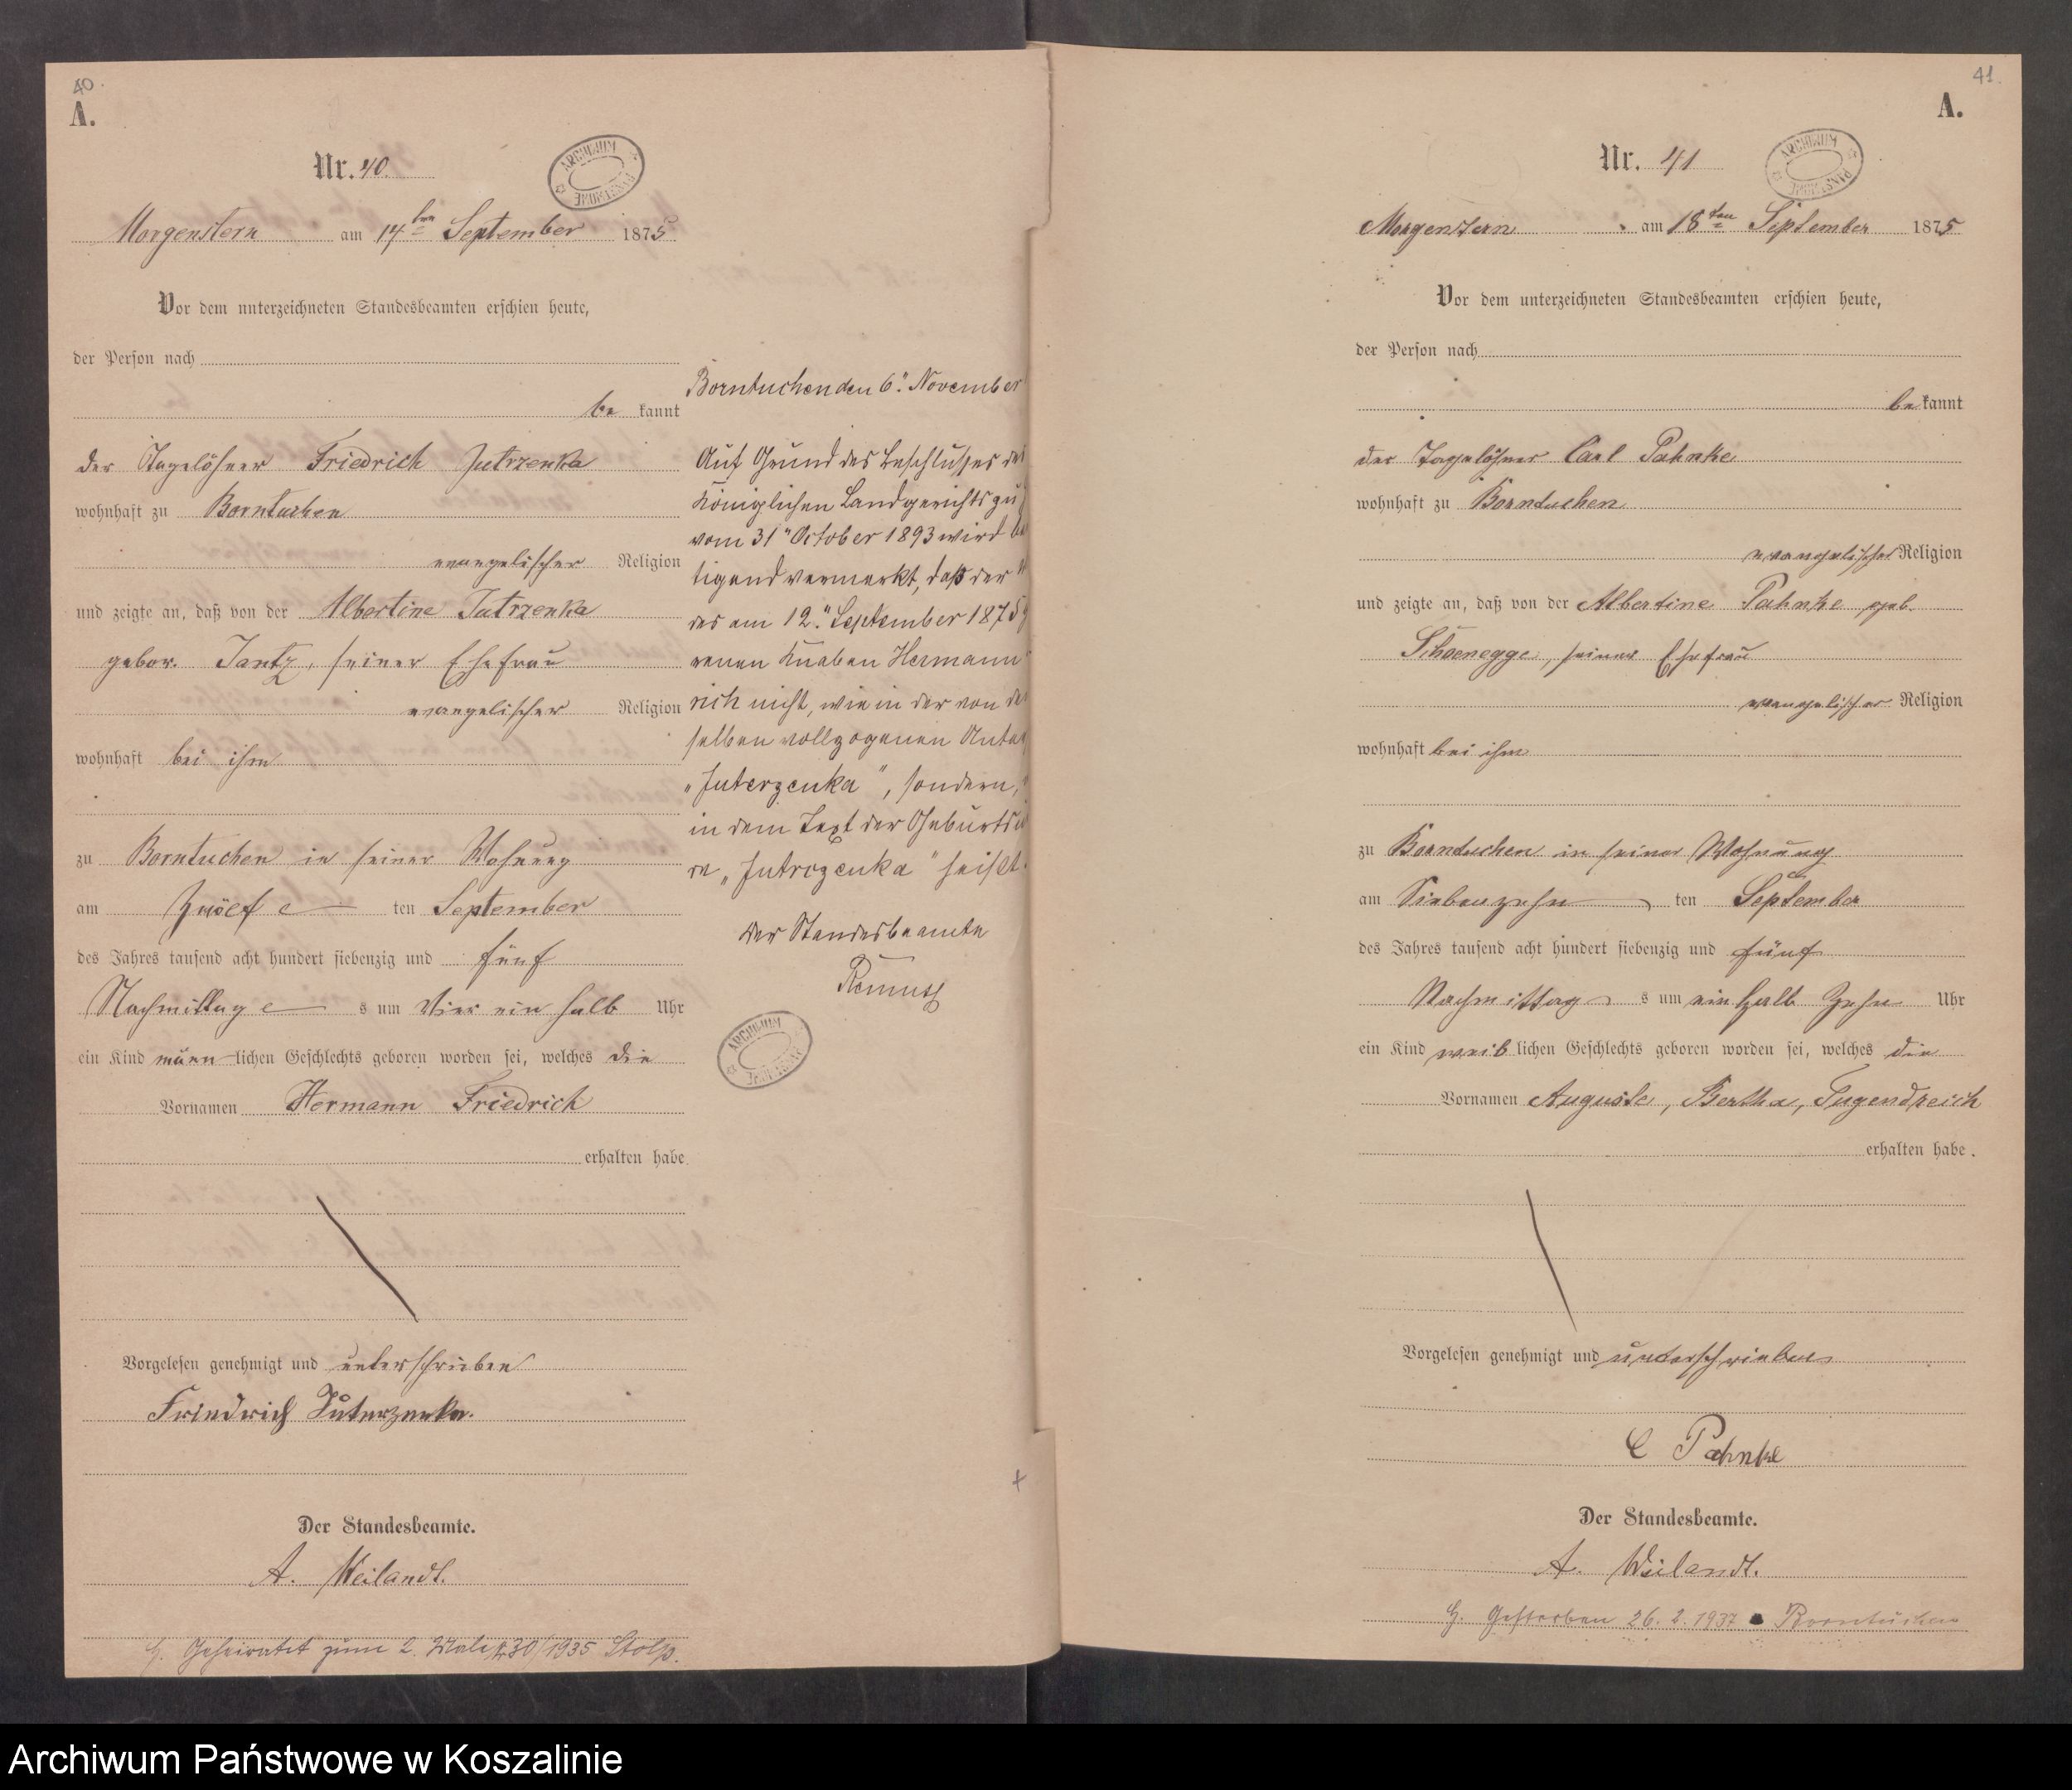 40.
A.
Nr. 40.
ARCHIWUM PAŃSTWOWE
Morgenstern am 14ten September 1875
Vor dem unterzeichneten Standesbeamten erschien heute,
der Person nach
be kannt
der Tagelöhner Friedrich Jutrzenka
wohnhaft zu Borntuchen
evangelischer Religion
und zeigte an, daß von der Albertine Jutrzenka
gebor. Jantz, seiner Ehefrau
evangelischer Religion
wohnhaft bei ihm
zu Borntuchen in seiner Wohnung
am Zwölf ten September
des Jahres tausend acht hundert siebenzig und fünf
Nachmittag s um Vier ein halb Uhr
ein Kind männ lichen Geschlechts geboren worden sei, welches die
Vornamen Hermann Friedrich
erhalten habe.
Vorgelesen genehmigt und unterschrieben
Friedrich Juterzenka.
Der Standesbeamte.
A. Weilandt.
Geheiratet zum 2. Male 30/1935 Stolp.
Borntuchen den 6. November
Auf Grund des Beschlußes des
Königlichen Landgerichts zu
vom 31" October 1893 wird
tigend vermerkt, daß der
des am 12." September 1875
renen Knaben Hermann
rich nicht, wie in der von
selben vollzogenen
„Juterzenka", sondern,
in dem Text der
„Jutrozenka" heißt.
Der Standesbeamte
ARCHIWUM PAŃSTWOWE
41.
A.
Nr. 41
ARCHIWUM PAŃSTWOWE
Morgenstern am 18ten September 1875
Vor dem unterzeichneten Standesbeamten erschien heute,
der Person nach
be kannt
der Tagelöhner Carl Pahnke
wohnhaft zu Borntuchen
evangelischer Religion
und zeigte an, daß von der Albertine Pahnke geb.
Schoenegge, seiner Ehefrau
evangelischer Religion
wohnhaft bei ihm
zu Borntuchen in seiner Wohnung
am Siebenzehn ten September
des Jahres tausend acht hundert siebenzig und fünf
Nachmittag s um ein halb Zehn Uhr
ein Kind weib lichen Geschlechts geboren worden sei, welches die
Vornamen Auguste, Bertha, Tugendreich
erhalten habe.
Vorgelesen genehmigt und unterschrieben
C Pahnke
Der Standesbeamte.
A. Weilandt.
Gestorben 26. 2. 1937 Borntuchen
Archiwum Państwowe w Koszalinie